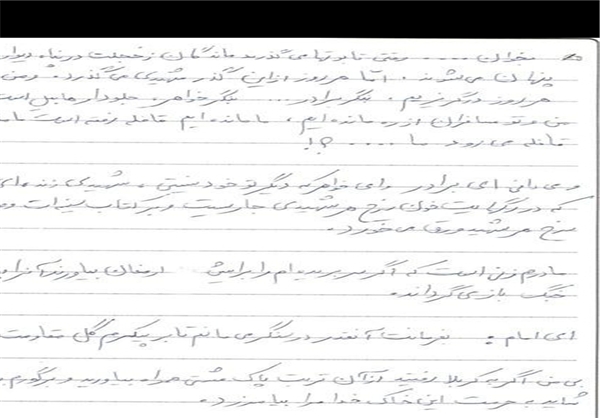 بخوان ..... وقتی تابوتها می گذرند ماندگان از خجلت در پناه دیوار
پنهان می شوند. امّا هر روز از این گذر شهیدی می گذرد. و من
هر روز در گریزیم. دیگر برادر ... دیگر خواهر جلودار هابیل است
من و تو مسافران از ره مانده ایم، ما مانده ایم قافله رفته است ما
قافله می رود ما ..... ؟!
و می دانی ای برادر وای خواهر که دیگر تو خود نیستی، شهیدی زنده ای
که در رگهایت خون سرخ هر شهیدی جاریست و بر کتاب سینه ات
سرخ هر شهید ورق می خورد.
مادرم زنی است که اگر سر بریده ام را برایش ارمغان بیاورند آنرا به
جنگ باز می گرداند.
ای امام: بفرمانت آنقدر در سنگر می مانم تا بر پیکرم گل مقاومت
بی من اگر به کربلا رفتید از آن تربت پاک مشتی همراه بیاورید و بر گورم
شاید به حرمت این خاک خدا مرا بیامرزد.